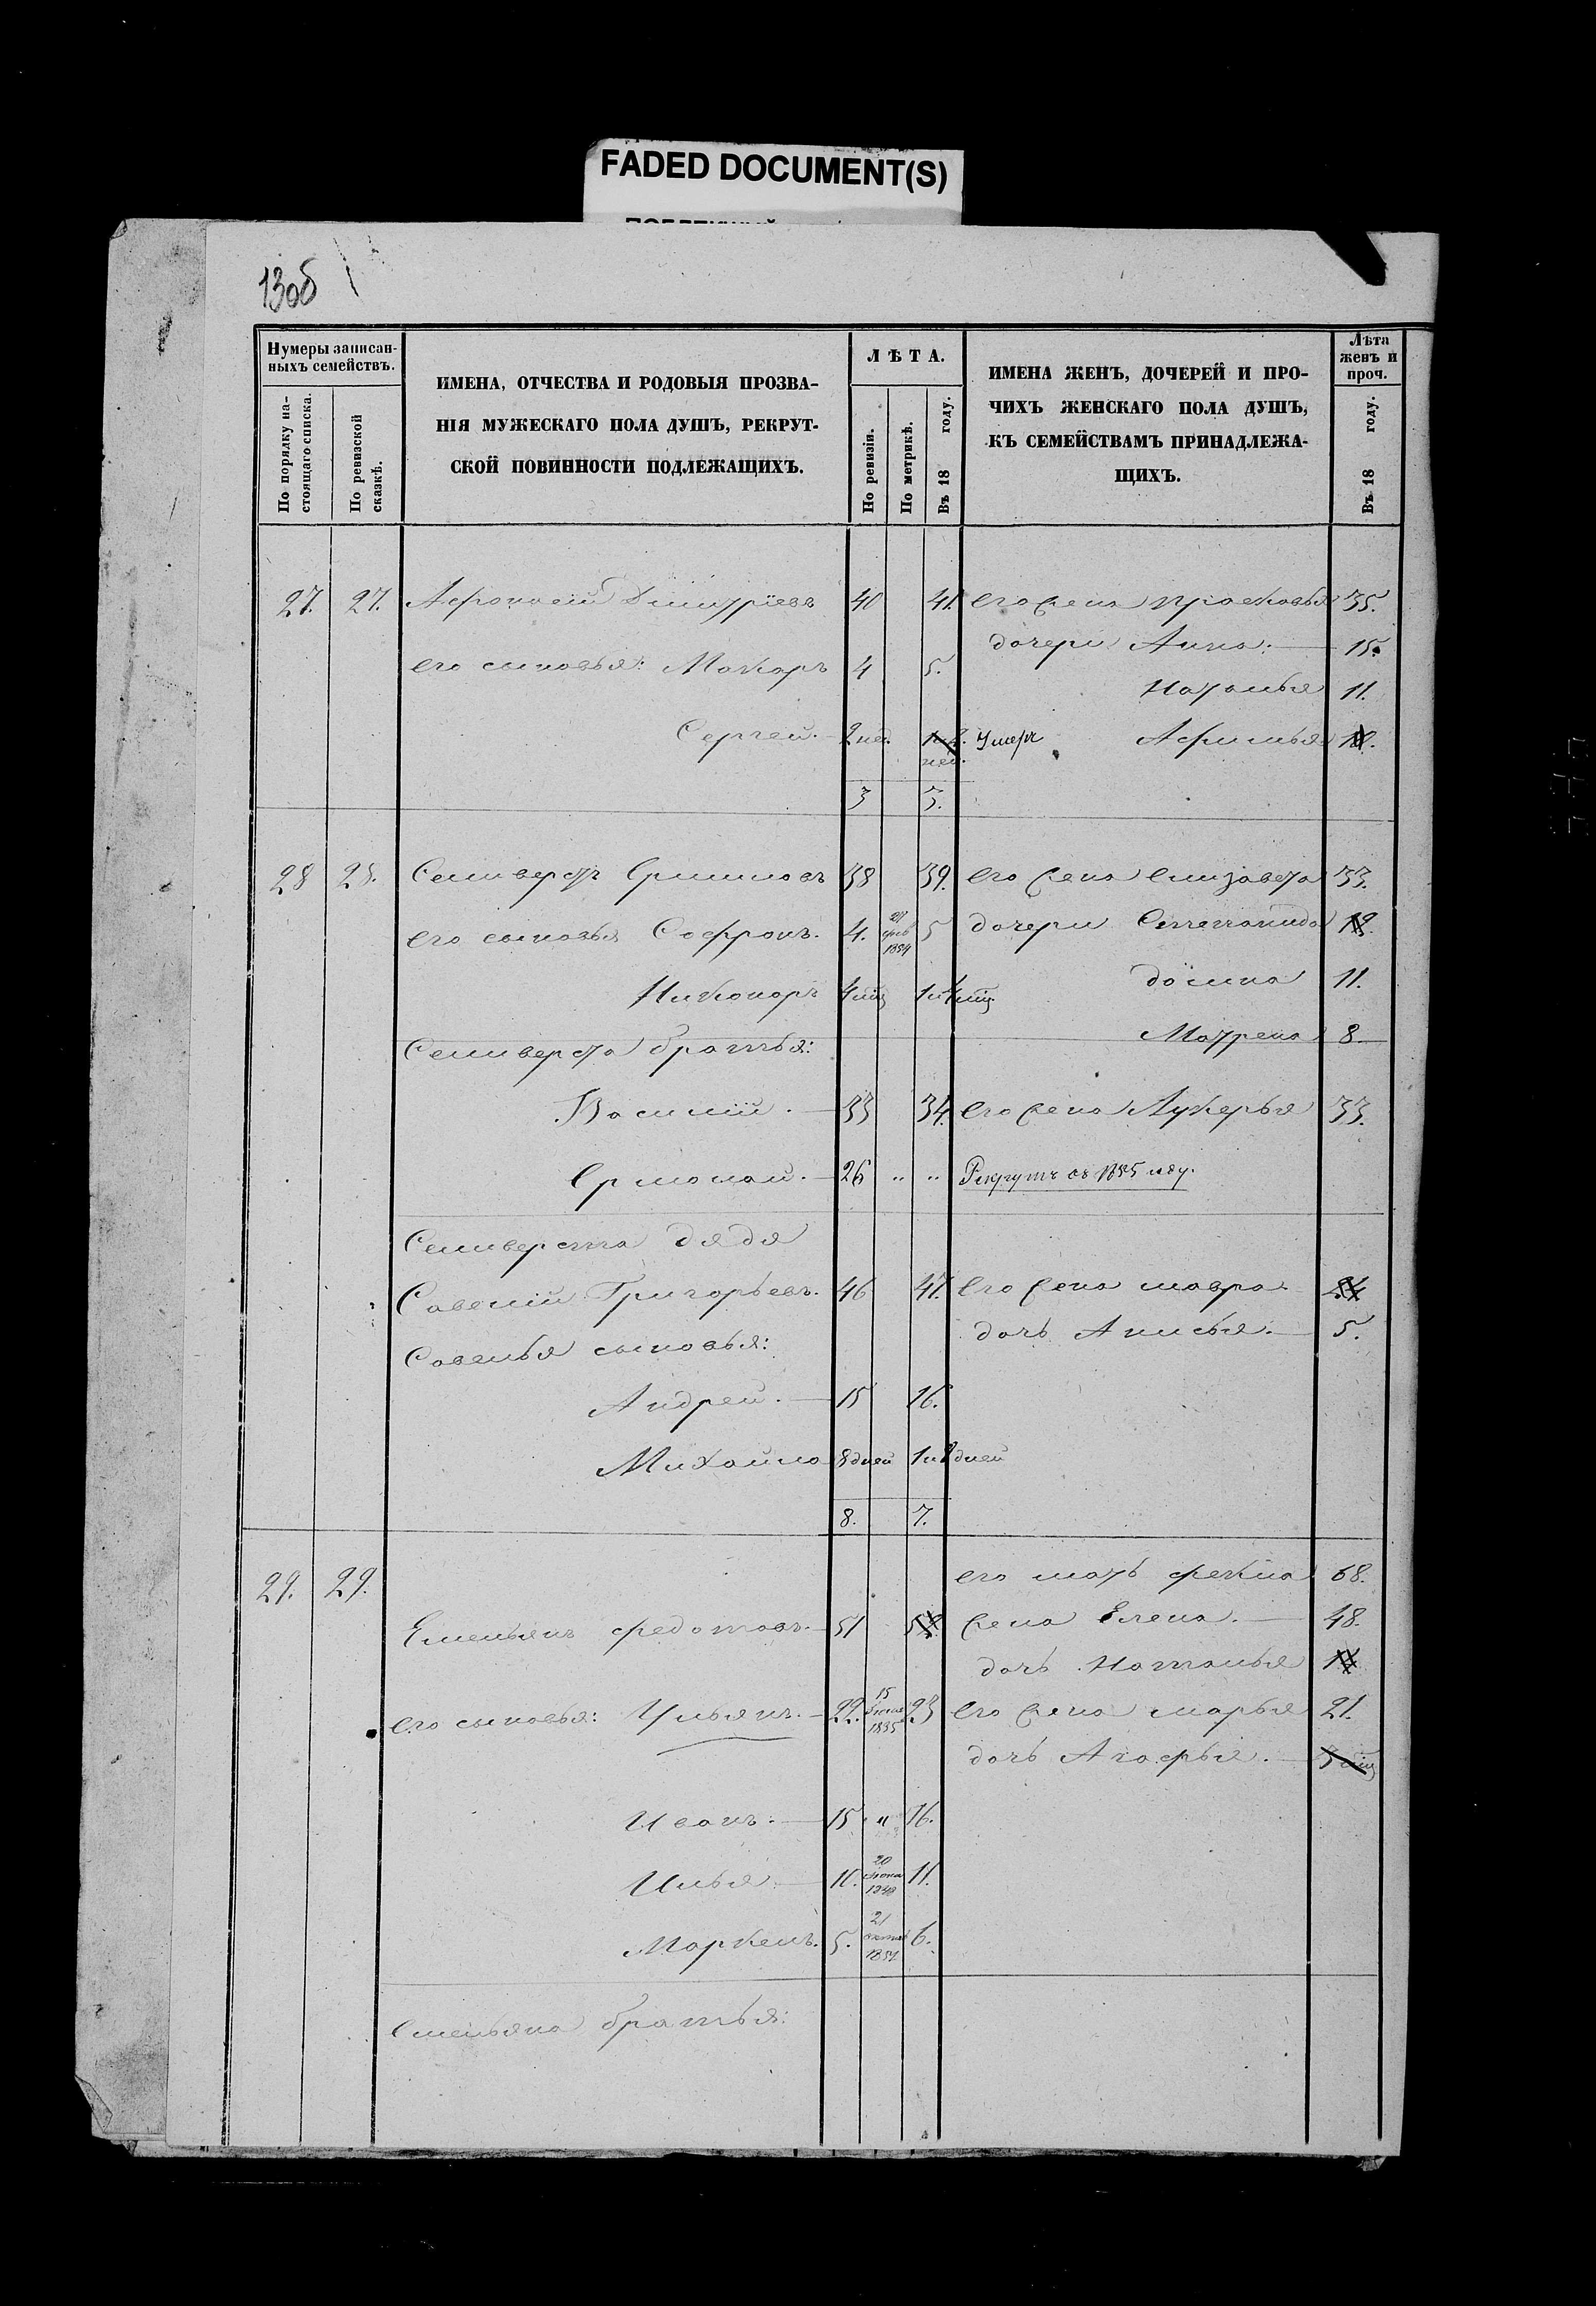 FADED DOCUMENT(S)
13об
Нумеры записан-
ныхъ семействъ.
По порядку на-
стоящаго списка.
По ревизской
сказкѣ.
ИМЕНА, ОТЧЕСТВА И РОДОВЫЯ ПРОЗВА-
НІЯ МУЖЕСКАГО ПОЛА ДУШЪ, РЕКРУТ-
СКОЙ ПОВИННОСТИ ПОДЛЕЖАЩИХЪ.
ЛѢТА.
По ревизіи.
По метрикѣ.
Въ 18 году.
ИМЕНА ЖЕНЪ, ДОЧЕРЕЙ И ПРО-
ЧИХЪ ЖЕНСКАГО ПОЛА ДУШЪ,
КЪ СЕМЕЙСТВАМЪ ПРИНАДЛЕЖА-
ЩИХЪ.
Лѣта
женъ и
проч.
Въ 18 году.
27. 27. Афонасій Дмитріевъ 40 41. его жена Прасковья 35.
дочери Анна. 15.
его сыновья: Макаръ 4 5.
Наталья 11.
Сергей. 2 нед. нед. Умеръ Афимья
3 3.
28 28. Селиверстъ 38 39. его жена Елизавета 33.
его сыновья Софронъ. 4. 27 фев 1854 5 дочери Степанида
Домна 11.
Никаноръ 4 мц 1 и 4 мц.
Матрена 8.
Селиверста братья:
Василій. 33 34. его жена Лукерья 33.
Ермолай. 26 " " Рекрутъ съ 1855 году.
Селиверста дядя
Савелій Григорьевъ. 46 47. его жена мавра.
дочь Анисья. 5.
Савелья сыновья:
Андрей. 15 16.
Михайло 8 дней 1 и 8 дней
8. 7.
29. 29. его мать фекла 68.
Емельянъ федотовъ. 51 жена Елена. 48.
дочь Наталья
его сыновья: Ульянъ. 22. 15 1835 23 его жена марья 21.
дочь Агафья. 3 мц
Иванъ. 15 " 16.
Илья. 10. 20 11.
Маркелъ. 5. 21 6.
Емельяна братья: